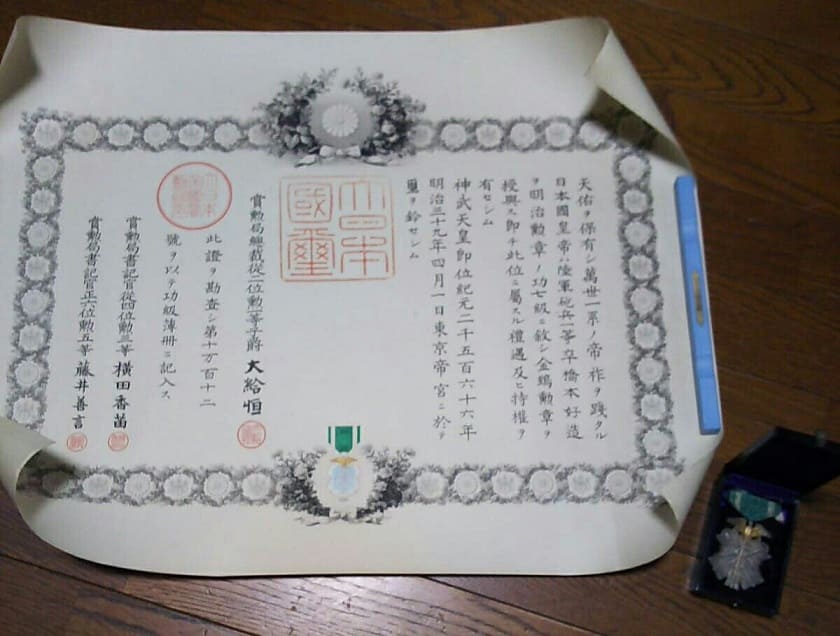 天佑ヲ保有シ萬世一系ノ帝祚ヲ踐タル
日本國皇帝ハ陸軍砲兵一等卒橋本好造
ヲ明治勲章ノ功七級ニ敘シ金鵄勲章ヲ
授與ス即チ此位ニ屬スル禮遇及ヒ特權ヲ
有セシム
神武天皇即位紀元二千五百六十六年
明治三十九年四月一日東京帝宮ニ於テ
璽ヲ鈐セシム
大日本
國璽
賞勲局總裁從二位勲一等子爵 大給恒
此證ヲ勘査シ第十万百十二
號ヲ以テ功級簿册ニ記入ス
賞勲局書記官從四位勲三等 横田香苗
賞勲局書記官正六位勲五等 藤井善言